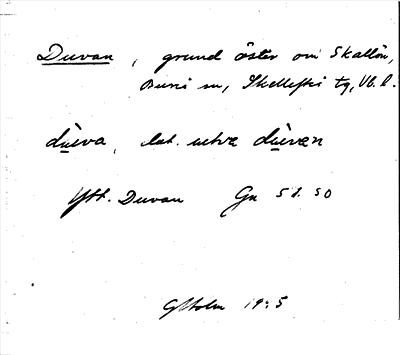 Duvan, grund öster om Skallön,
Bureå sn, Skellefteå tg, Vb. l.
dùva, dat. utva dùvan
Ytt. Duvan Gn 51. 50
G Holm